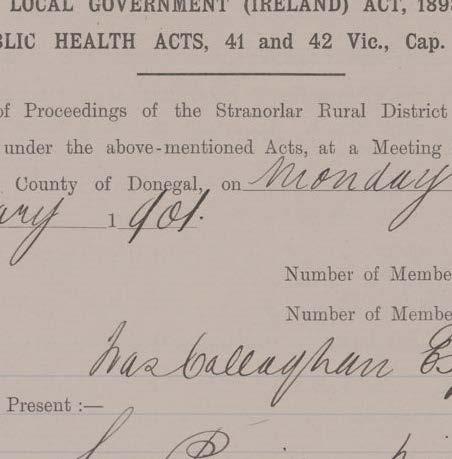 LOCAL GOVERNMENT (IRELAND) ACT, 189
BLIC HEALTH ACTS, 41 and 42 Vic., Cap.
of Proceedings of the Stranorlar Rural District
under the above-mentioned Acts, at a Meeting
County of Donegal, on Monday
ary 1901.
Number of Membe
Number of Membe
Callaghan
Present :—